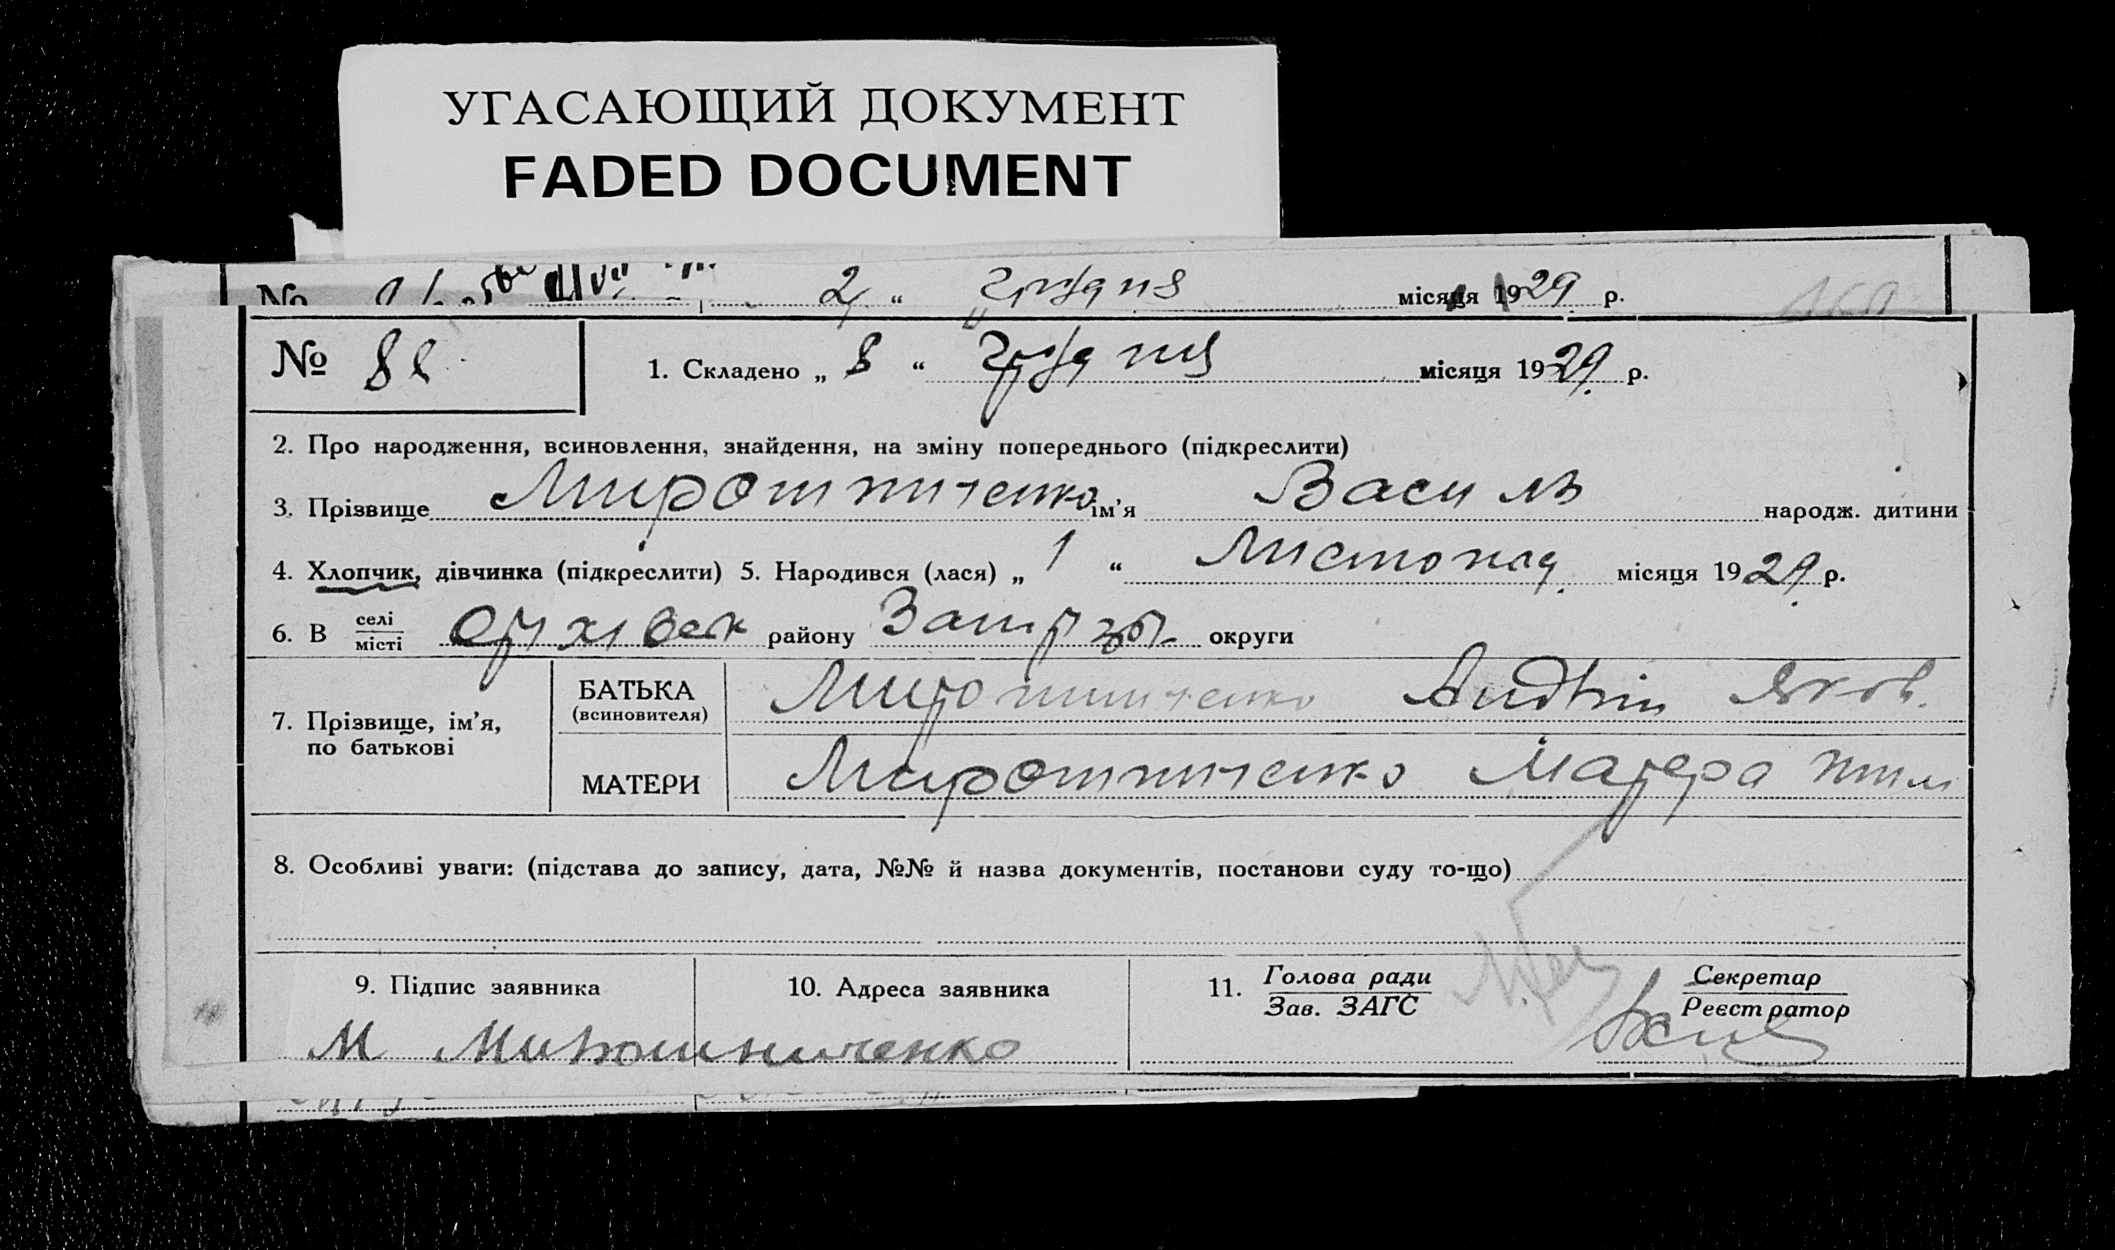 УГАСАЮЩИЙ ДОКУМЕНТ
FADED DOCUMENT
№ 2 “ грудня місяця 1929 р.
№ 88 1. Складено „ 8 “ грудня місяця 1929 р.
2. Про народження, всиновлення, знайдення, на зміну попереднього (підкреслити)
3. Прізвище Мирошниченко ім’я Василь народж. дитини
4. Хлопчик, дівчинка (підкреслити) 5. Народився (лася) „ 1 “ Листопад. місяця 1929 р.
6. В селі місті району округи
7. Прізвище, ім’я, по батькові
БАТЬКА (всиновителя) Мирошниченко Андрій Яков.
МАТЕРИ Мирошниченко
8. Особливі уваги: (підстава до запису, дата, №№ й назва документів, постанови суду то-що)
9. Підпис заявника 10. Адреса заявника 11. Голова ради Зав. ЗАГС Секретар Реєстратор
М Мирошниченко